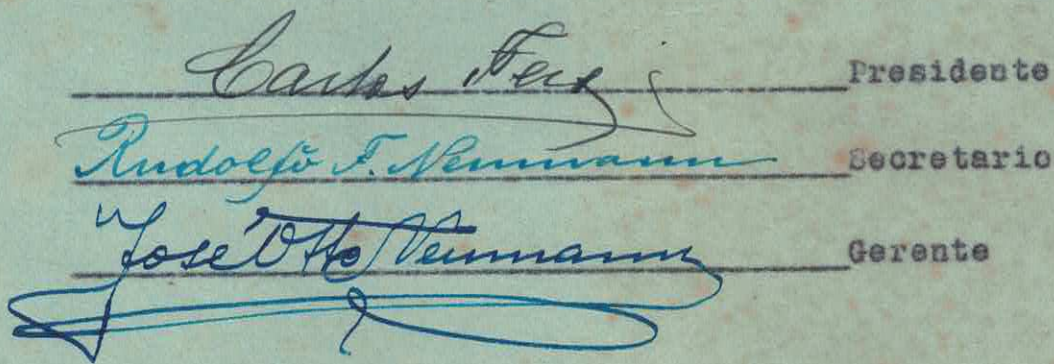 Carlos Presidente
Rudolfo F. Neumann Secretario
José Otto Neumann Gerente